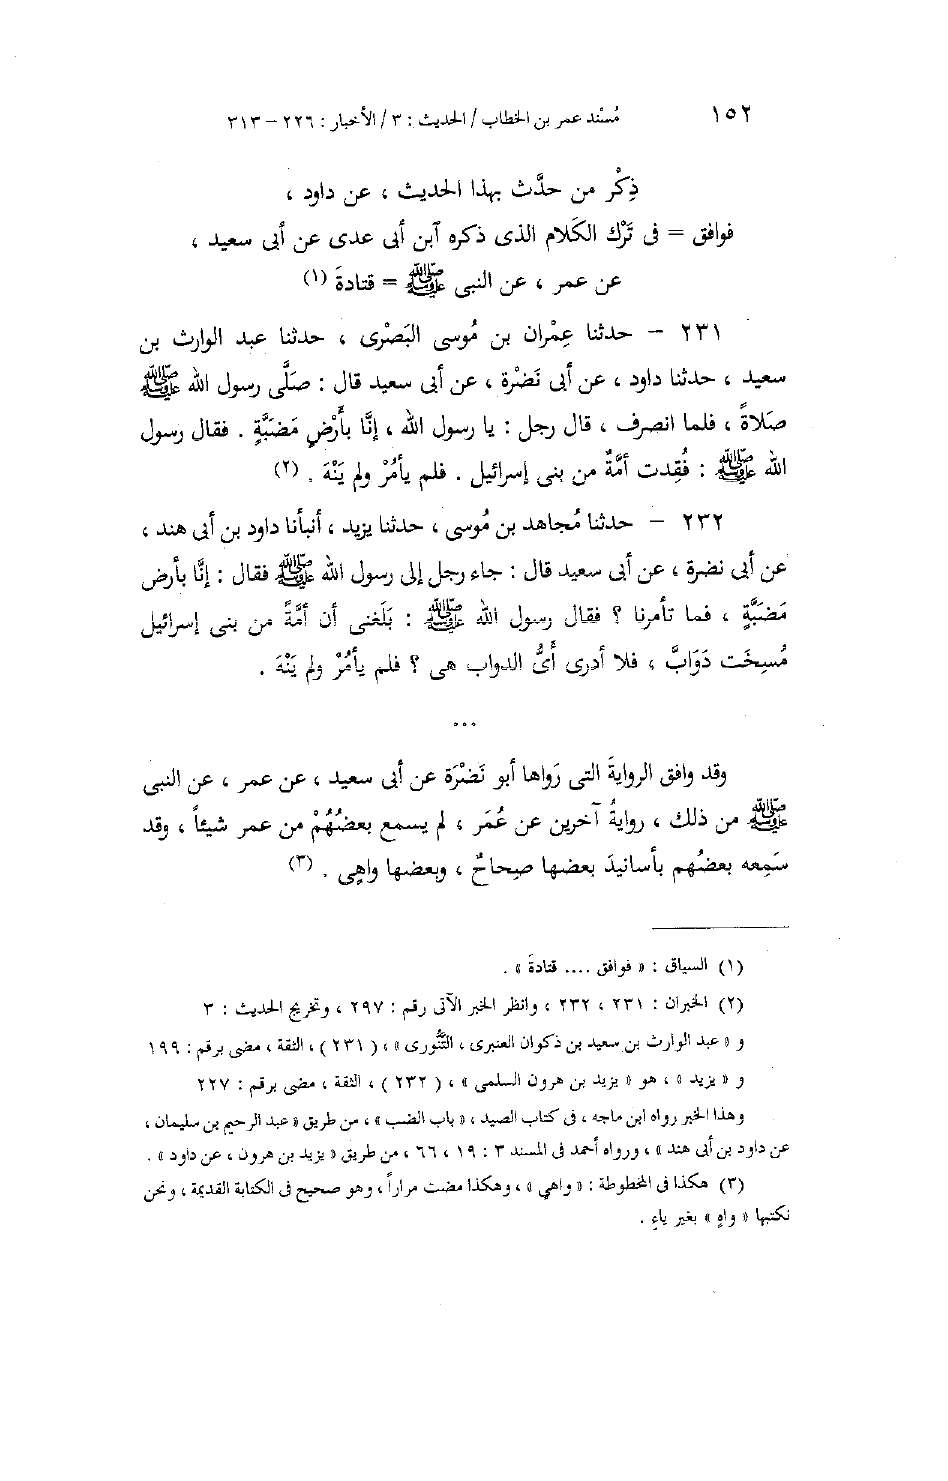 ١٥٢ مُسْند عمر بن الخطاب / الحديث : ٣ / الأخبار : ٢٢٦ – ٣١٣
ذِكْر من حدَّث بهذا الحديث ، عن داود ،
فوافق = فى تَرْك الكَلام الذى ذكره آبن أبى عدى عن أبى سعيد ،
عن عمر ، عن النبى ﷺ = قتادةَ (١)
٢٣١ – حدثنا عِمْران بن مُوسى البَصْرى ، حدثنا عبد الوارث بن
سعيد ، حدثنا داود ، عن أبى نَضْرة ، عن أبى سعيد قال : صَلَّى رسول الله ﷺ
صَلاةً ، فلما انصرف ، قال رجل : يا رسول الله ، إنَّا بأَرْضٍ مَضَبَّةٍ . فقال رسول
الله ﷺ : فُقِدت أمَّةٌ من بنى إسرائيل . فلم يأمُرْ ولم يَنْهَ . (٢)
٢٣٢ – حدثنا مُجاهد بن مُوسى ، حدثنا يزيد ، أنبأنا داود بن أبى هند ،
عن أبى نضرة ، عن أبى سعيد قال : جاء رجل إلى رسول الله ﷺ فقال : إنَّا بأرض
مَضَبَّةٍ ، فما تأمرنا ؟ فقال رسول الله ﷺ : بَلَغنى أن أمَّةً من بنى إسرائيل
مُسِخَت دَوَابَّ ، فلا أدرى أَىُّ الدواب هى ؟ فلم يأمُرْ ولم يَنْهَ .
...
وقد وافق الروايةَ التى رَواها أبو نَضْرَة عن أبى سعيد ، عن عمر ، عن النبى
ﷺ من ذلك ، روايةُ آخرين عن عُمَر ، لم يسمع بعضُهُمْ من عمر شيئاً ، وقد
سَمِعه بعضُهم بأسانيدَ بعضها صِحاحٌ ، وبعضها واهِى . (٣)
(١) السياق : « فوافق .... قتادةَ » .
(٢) الخبران : ٢٣١ ، ٢٣٢ ، وانظر الخبر الآتى رقم : ٢٩٧ ، وتخريج الحديث : ٣
و « عبد الوارث بن سعيد بن ذكوان العنبرى ، التَّنُّورى » ، ( ٢٣١ ) ، الثقة ، مضى برقم : ١٩٩
و « يزيد » ، هو « يزيد بن هرون السلمى » ، ( ٢٣٢ ) ، الثقة ، مضى برقم : ٢٢٧
وهذا الخبر رواه ابن ماجه ، فى كتاب الصيد ، « باب الضب » ، من طريق « عبد الرحيم بن سليمان ،
عن داود بن أبى هند » ، ورواه أحمد فى المسند ٣ : ١٩ ، ٦٦ ، من طريق « يزيد بن هرون ، عن داود » .
(٣) هكذا فى المخطوطة : « واهي » ، وهكذا مضت مراراً ، وهو صحيح فى الكتابة القديمة ، ونحن
نكتبها « واهٍ » بغير ياءٍ .